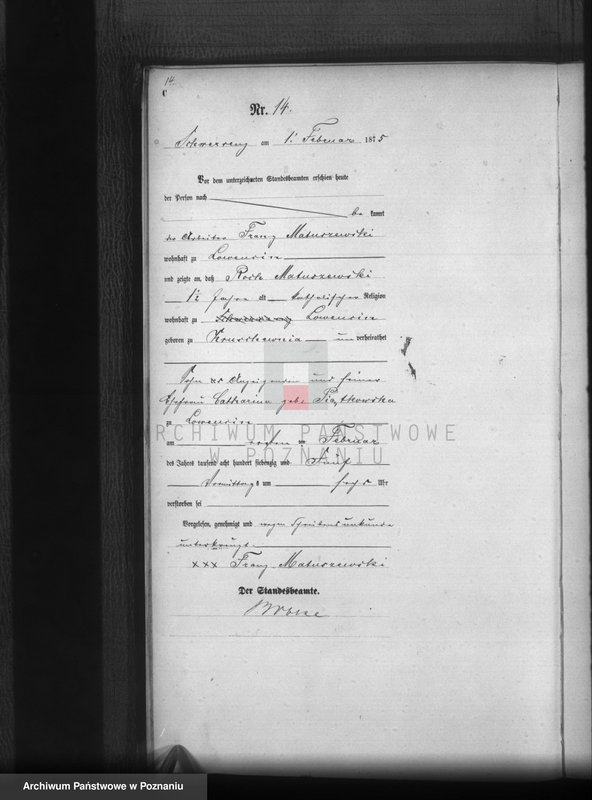 14
Nr. 14.
Schwersenz am 1. Februar 1875
Vor dem unterzeichneten Standesbeamten erschien heute
der Person nach
be kannt
der Arbeiter Franz Matuszewski
wohnhaft zu Lowencin
und zeigte an, daß Roch Matuszewski
1½ Jahre alt katholischer Religion
wohnhaft zu Schwersenz Lowencin
geboren zu un verheirathet
Sohn des Anzeigenden und seiner
Ehefrau Catharina geb. Piątkowska
zu Lowencin
am ersten Februar
des Jahres tausend acht hundert siebenzig und Fünf
Vormittags um sechs Uhr
verstorben sei
Vorgelesen, genehmigt und wegen Schreibensunkunde
unterkreuzt.
xxx Franz Matuszewski
Der Standesbeamte.
ARCHIWUM PAŃSTWOWE
W POZNANIU
Archiwum Państwowe w Poznaniu